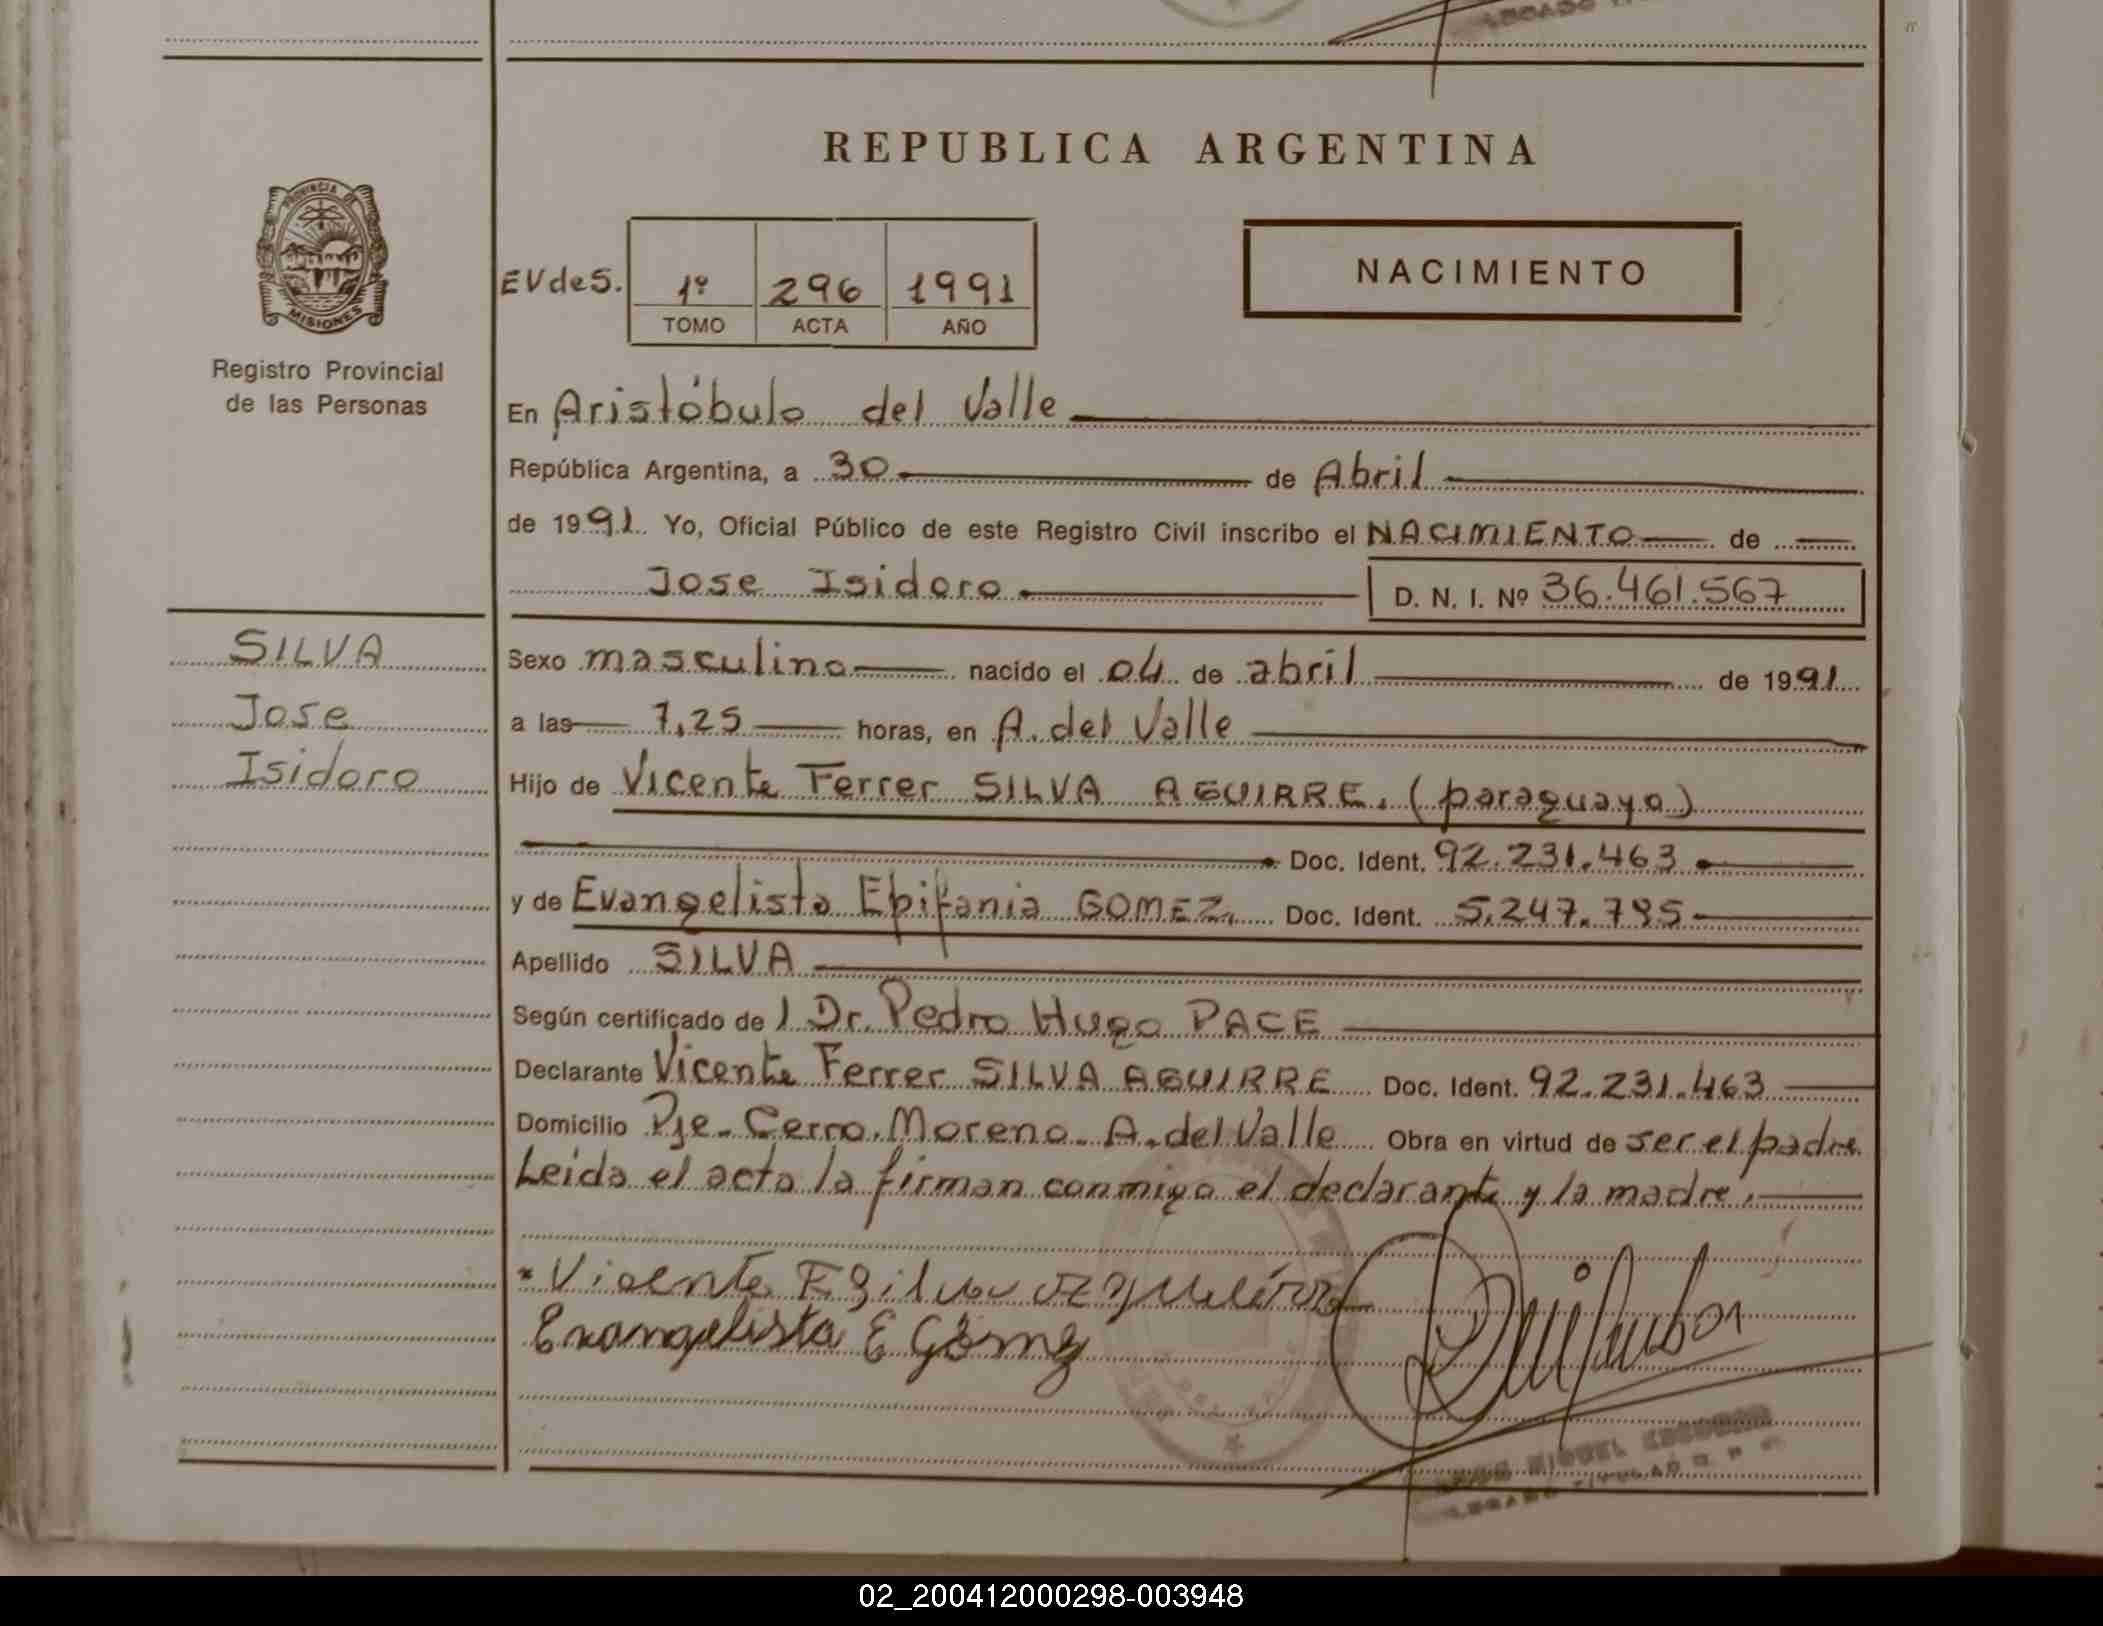 REPUBLICA ARGENTINA
PROVINCIA DE
MISIONES
Registro Provincial
de las Personas
EVdeS.
1º 296 1991
TOMO ACTA AÑO
NACIMIENTO
En Aristóbulo del Valle
República Argentina, a 30 de Abril
de 1991 Yo, Oficial Público de este Registro Civil inscribo el NACIMIENTO de
Jose Isidoro D. N. I. Nº 36.461.567
SILVA
Jose
Isidoro
Sexo masculino nacido el 04 de abril de 1991
a las 7,25 horas, en A. del Valle
Hijo de Vicente Ferrer SILVA AGUIRRE. (paraguayo)
Doc. Ident. 92.231.463
y de Evangelista Epifania GOMEZ. Doc. Ident. 5.247.795
Apellido SILVA
Según certificado de l Dr. Pedro Hugo PACE
Declarante Vicente Ferrer SILVA AGUIRRE Doc. Ident. 92.231.463
Domicilio Pje. Cerro Moreno. A. del Valle Obra en virtud de ser el padre
Leida el acta la firman conmigo el declarante y la madre.
Vicente F Silva
Evangelista E Gómez
MIGUEL ESCOBAR
TITULAR R. P.
02_200412000298-003948